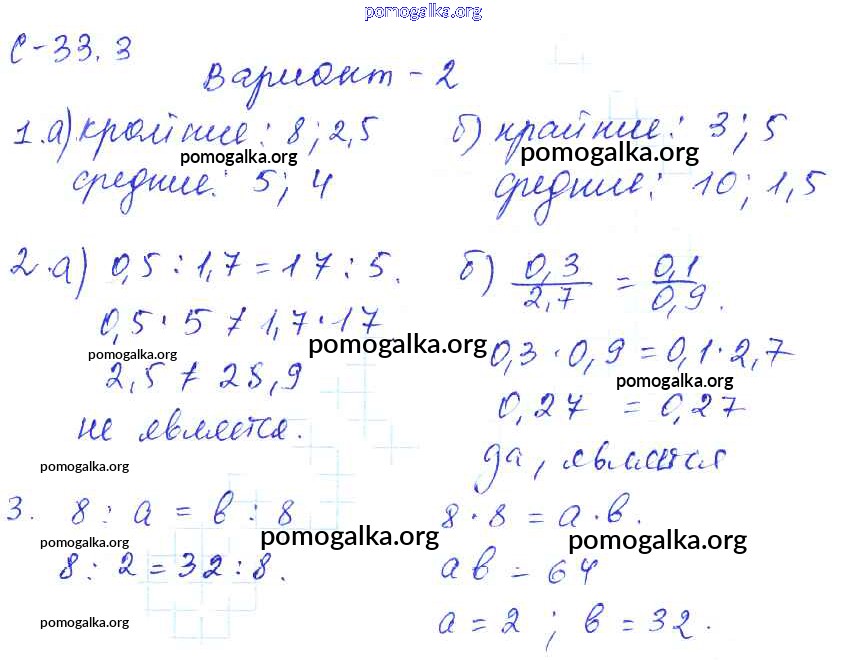 pomogalka.org
С-33.3
Вариант-2
1.а) крайние: 8; 2,5 б) крайние: 3; 5
pomogalka.org pomogalka.org
средние: 5; 4 средние: 10; 1,5
2.а) 0,5 : 1,7 = 17 : 5. б) 0,3/2,7 = 0,1/0,9.
0,5 · 5 ≠ 1,7 · 17
pomogalka.org pomogalka.org 0,3 · 0,9 = 0,1 · 2,7
2,5 ≠ 28,9 pomogalka.org
не является. 0,27 = 0,27
pomogalka.org да, является
3. 8 : а = в : 8 8 · 8 = а · в.
pomogalka.org pomogalka.org pomogalka.org
8 : 2 = 32 : 8. ав = 64
pomogalka.org а = 2 ; в = 32.